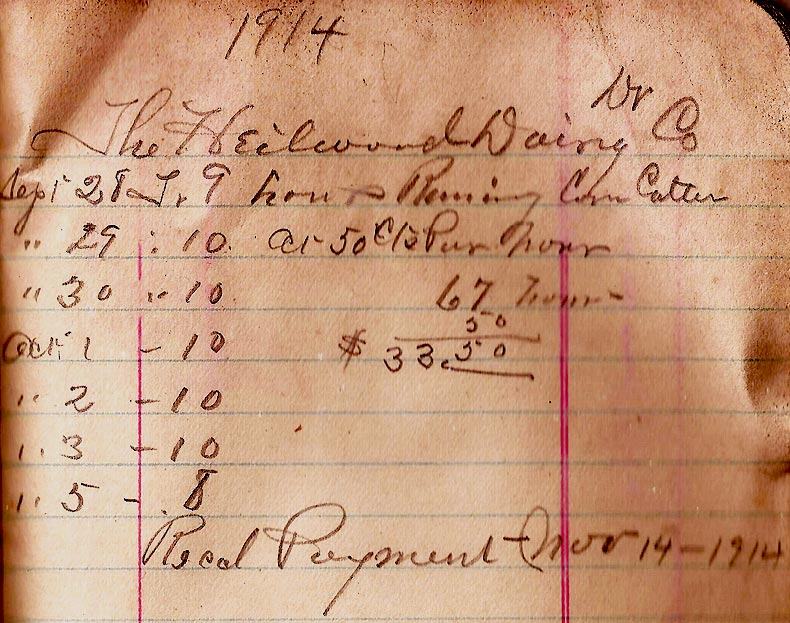 1914
Dr
The Heilwood Dairy Co
Sept 28 To 9 hours Running Corn Cutter
" 29 " 10 at 50 cts Per hour
" 30 " 10 67 hours
50
Oct 1 - 10 $ 33.50
" 2 - 10
" 3 - 10
" 5 - 8
Recd Payment Nov 14 - 1914